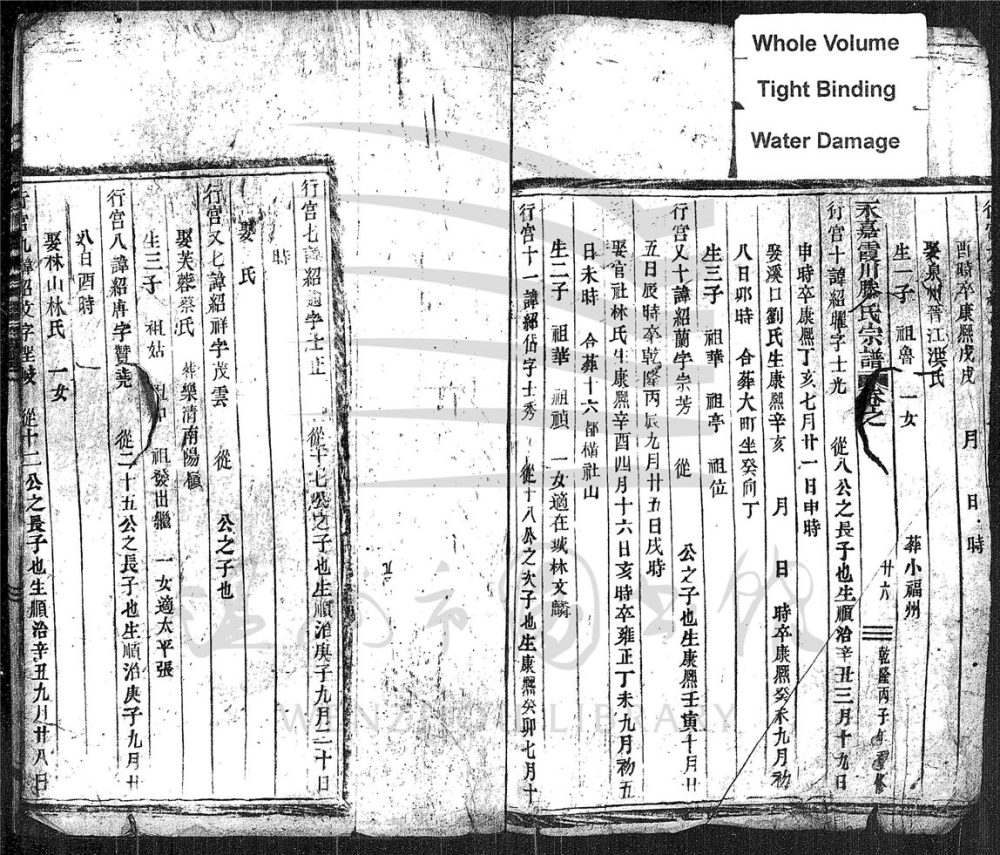 Whole Volume
Tight Binding
Water Damage
酉時卒康熙戊戌 月 日 時
娶泉州晉江 氏 葬小福州
生一子 祖魯 一女
永嘉霞川滕氏宗譜 卷之 廿六 乾隆丙子年重修
行宮十諱紹 字士光 從八公之長子也生順治辛丑三月十九日
申時卒康熙丁亥七月廿一日申時
娶溪口劉氏生康熙辛亥 月 日 時卒康熙癸未九月初
八日卯時 合葬大町坐癸向丁
生三子 祖華 祖亭 祖位
行宮又十諱紹蘭字崇芳 從 公之子也生康熙壬寅十月廿
五日辰時卒乾隆丙辰九月廿五日戌時
娶官社林氏生康熙辛酉四月十六日亥時卒雍正丁未九月初五
日未時 合葬十六都橫社山
生二子 祖華 祖禎 一女適在城林文麟
行宮十一諱紹 字士秀 從十八公之次子也生康熙癸卯七月十
行宮七諱紹 字士正 從十七公之子也生順治庚子九月二十日
時
娶 氏
行宮又七諱紹祥字茂雲 從 公之子也
娶芙蓉蔡氏 葬樂清南陽
生三子 祖姑 祖 祖發出繼 一女適太平張
行宮八諱紹唐字贊堯 從二十五公之長子也生順治庚子九月廿
八日酉時
娶林山林氏 一女
行宮九諱紹 字 從十二公之長子也生順治辛丑九月廿八日
WENZHOU LIBRARY